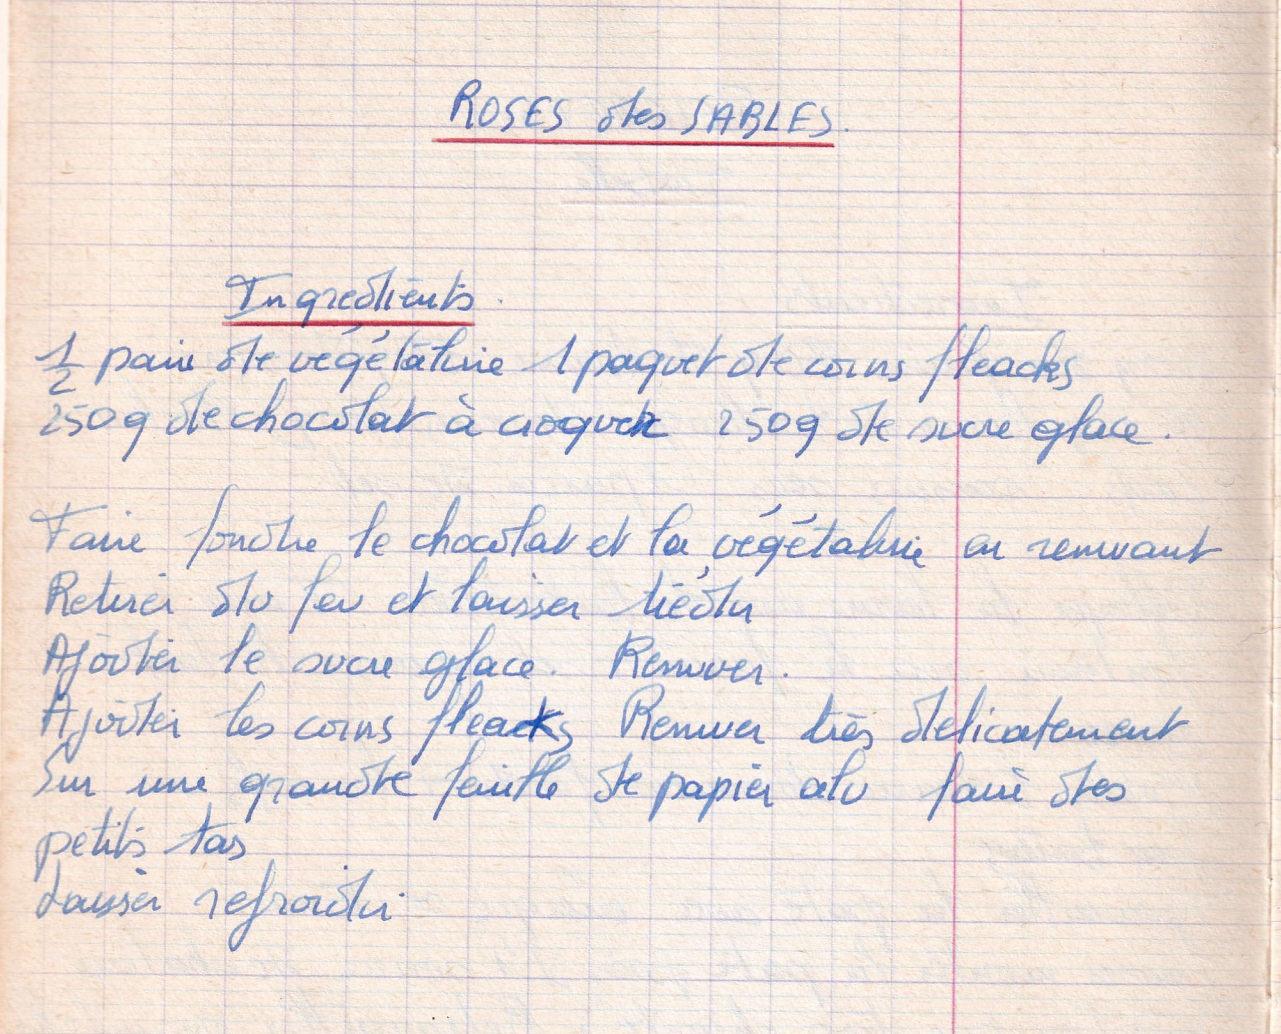 ROSES des SABLES.
Ingrédients.
1/2 pain de végétaline 1 paquet de corns fleacks
250g de chocolat à croquer 250g de sucre glace.
Faire fondre le chocolat et la végétaline en remuant
Retirer du feu et laisser tiédir
Ajouter le sucre glace. Remuer.
Ajouter les corns fleacks Remuer très délicatement
Sur une grande feuille de papier alu faire des
petits tas
Laisser refroidir